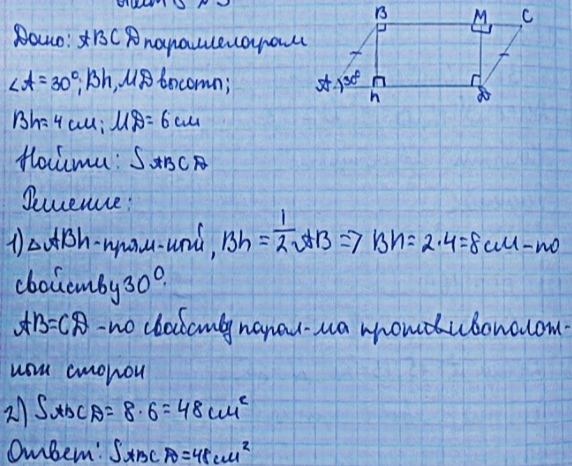 B M C
Дано: ABCD параллелограм
∠A=30°; Bh, MD высоты;
A 30° h D
Bh=4см; MD=6см
Найти: SABCD
Решение:
1) △ABh-прям-ный, Bh=1/2 AB => Bh=2·4=8см-по
свойству 30°.
AB=CD -по свойству парал-ма противополож-
ных сторон
2) SABCD= 8·6=48см²
Ответ: SABCD=48см²